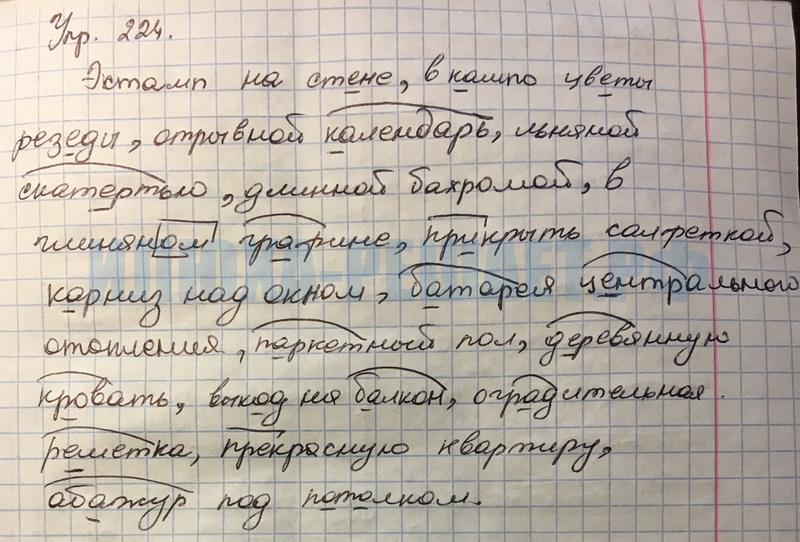 Упр. 224.
Эстамп на стене, в кашпо цветы
резеды, отрывной календарь, льняной
скатертью, длинной бахромой, в
глиняном графине, прикрыть салфеткой,
карниз над окном, батарея центрального
отопления, паркетный пол, деревянную
кровать, выход на балкон, оградительная
решетка, прекрасную квартиру,
абажур под потолком.